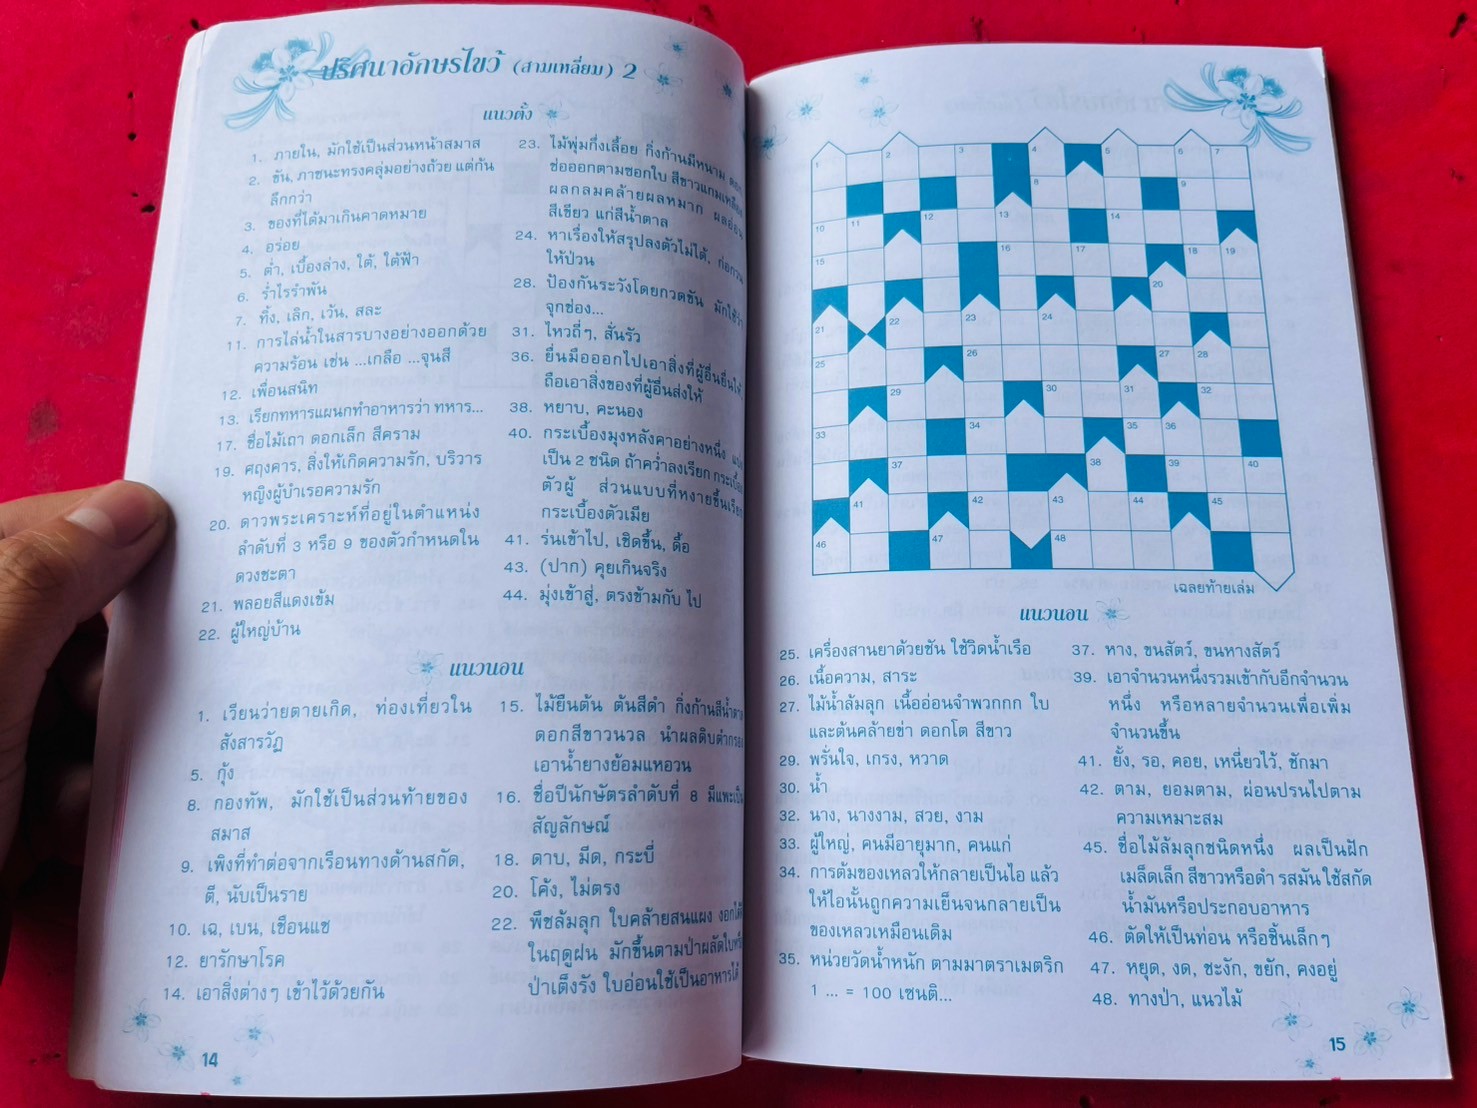 ปริศนาอักษรไขว้ (สามเหลี่ยม) 2
แนวตั้ง
1. ภายใน, มักใช้เป็นส่วนหน้าสมาส
2. ขัน, ภาชนะทรงคลุ่มอย่างถ้วย แต่ก้น
ลึกกว่า
3. ของที่ได้มาเกินคาดหมาย
4. อร่อย
5. ต่ำ, เบื้องล่าง, ใต้, ใต้ฟ้า
6. ร่ำไรรำพัน
7. ทิ้ง, เลิก, เว้น, สละ
11. การไล่น้ำในสารบางอย่างออกด้วย
ความร้อน เช่น ...เกลือ ...จุนสี
12. เพื่อนสนิท
13. เรียกทหารแผนกทำอาหารว่า ทหาร...
17. ชื่อไม้เถา ดอกเล็ก สีคราม
19. ศฤงคาร, สิ่งให้เกิดความรัก, บริวาร
หญิงผู้บำเรอความรัก
20. ดาวพระเคราะห์ที่อยู่ในตำแหน่ง
ลำดับที่ 3 หรือ 9 ของตัวกำหนดใน
ดวงชะตา
21. พลอยสีแดงเข้ม
22. ผู้ใหญ่บ้าน
23. ไม้พุ่มกึ่งเลื้อย กิ่งก้านมีหนาม ดอก
ช่อออกตามซอกใบ สีขาวแกมเหลือง
ผลกลมคล้ายผลหมาก ผลอ่อน
สีเขียว แก่สีน้ำตาล
24. หาเรื่องให้สรุปลงตัวไม่ได้, ก่อกวน
ให้ป่วน
28. ป้องกันระวังโดยกวดขัน มักใช้ว่า
จุกช่อง...
31. ไหวถี่ๆ, สั่นรัว
36. ยื่นมือออกไปเอาสิ่งที่ผู้อื่นยื่นให้,
ถือเอาสิ่งของที่ผู้อื่นส่งให้
38. หยาบ, คะนอง
40. กระเบื้องมุงหลังคาอย่างหนึ่ง แบ่ง
เป็น 2 ชนิด ถ้าคว่ำลงเรียก กระเบื้อง
ตัวผู้ ส่วนแบบที่หงายขึ้นเรียก
กระเบื้องตัวเมีย
41. ร่นเข้าไป, เชิดขึ้น, ดื้อ
43. (ปาก) คุยเกินจริง
44. มุ่งเข้าสู่, ตรงข้ามกับ ไป
แนวนอน
1. เวียนว่ายตายเกิด, ท่องเที่ยวใน
สังสารวัฏ
5. กุ้ง
8. กองทัพ, มักใช้เป็นส่วนท้ายของ
สมาส
9. เพิงที่ทำต่อจากเรือนทางด้านสกัด,
ตี, นับเป็นราย
10. เฉ, เบน, เชือนแช
12. ยารักษาโรค
14. เอาสิ่งต่างๆ เข้าไว้ด้วยกัน
15. ไม้ยืนต้น ต้นสีดำ กิ่งก้านสีน้ำตาล
ดอกสีขาวนวล นำผลดิบตำกรอง
เอาน้ำยางย้อมแหอวน
16. ชื่อปีนักษัตรลำดับที่ 8 มีแพะเป็น
สัญลักษณ์
18. ดาบ, มีด, กระบี่
20. โค้ง, ไม่ตรง
22. พืชล้มลุก ใบคล้ายสนแผง งอกได้ดี
ในฤดูฝน มักขึ้นตามป่าผลัดใบหรือ
ป่าเต็งรัง ใบอ่อนใช้เป็นอาหารได้
14
1 2 3 4 5 6 7
8 9
10 11 12 13 14
15 16 17 18 19
20
21 22 23 24
25 26 27 28
29 30 31 32
33 34 35 36
37 38 39 40
41 42 43 44 45
46 47 48
เฉลยท้ายเล่ม
แนวนอน
25. เครื่องสานยาด้วยชัน ใช้วิดน้ำเรือ
26. เนื้อความ, สาระ
27. ไม้น้ำล้มลุก เนื้ออ่อนจำพวกกก ใบ
และต้นคล้ายข่า ดอกโต สีขาว
29. พรั่นใจ, เกรง, หวาด
30. น้ำ
32. นาง, นางงาม, สวย, งาม
33. ผู้ใหญ่, คนมีอายุมาก, คนแก่
34. การต้มของเหลวให้กลายเป็นไอ แล้ว
ให้ไอนั้นถูกความเย็นจนกลายเป็น
ของเหลวเหมือนเดิม
35. หน่วยวัดน้ำหนัก ตามมาตราเมตริก
1 ... = 100 เซนติ...
37. หาง, ขนสัตว์, ขนหางสัตว์
39. เอาจำนวนหนึ่งรวมเข้ากับอีกจำนวน
หนึ่ง หรือหลายจำนวนเพื่อเพิ่ม
จำนวนขึ้น
41. ยั้ง, รอ, คอย, เหนี่ยวไว้, ชักมา
42. ตาม, ยอมตาม, ผ่อนปรนไปตาม
ความเหมาะสม
45. ชื่อไม้ล้มลุกชนิดหนึ่ง ผลเป็นฝัก
เมล็ดเล็ก สีขาวหรือดำ รสมัน ใช้สกัด
น้ำมันหรือประกอบอาหาร
46. ตัดให้เป็นท่อน หรือชิ้นเล็กๆ
47. หยุด, งด, ชะงัก, ขยัก, คงอยู่
48. ทางป่า, แนวไม้
15